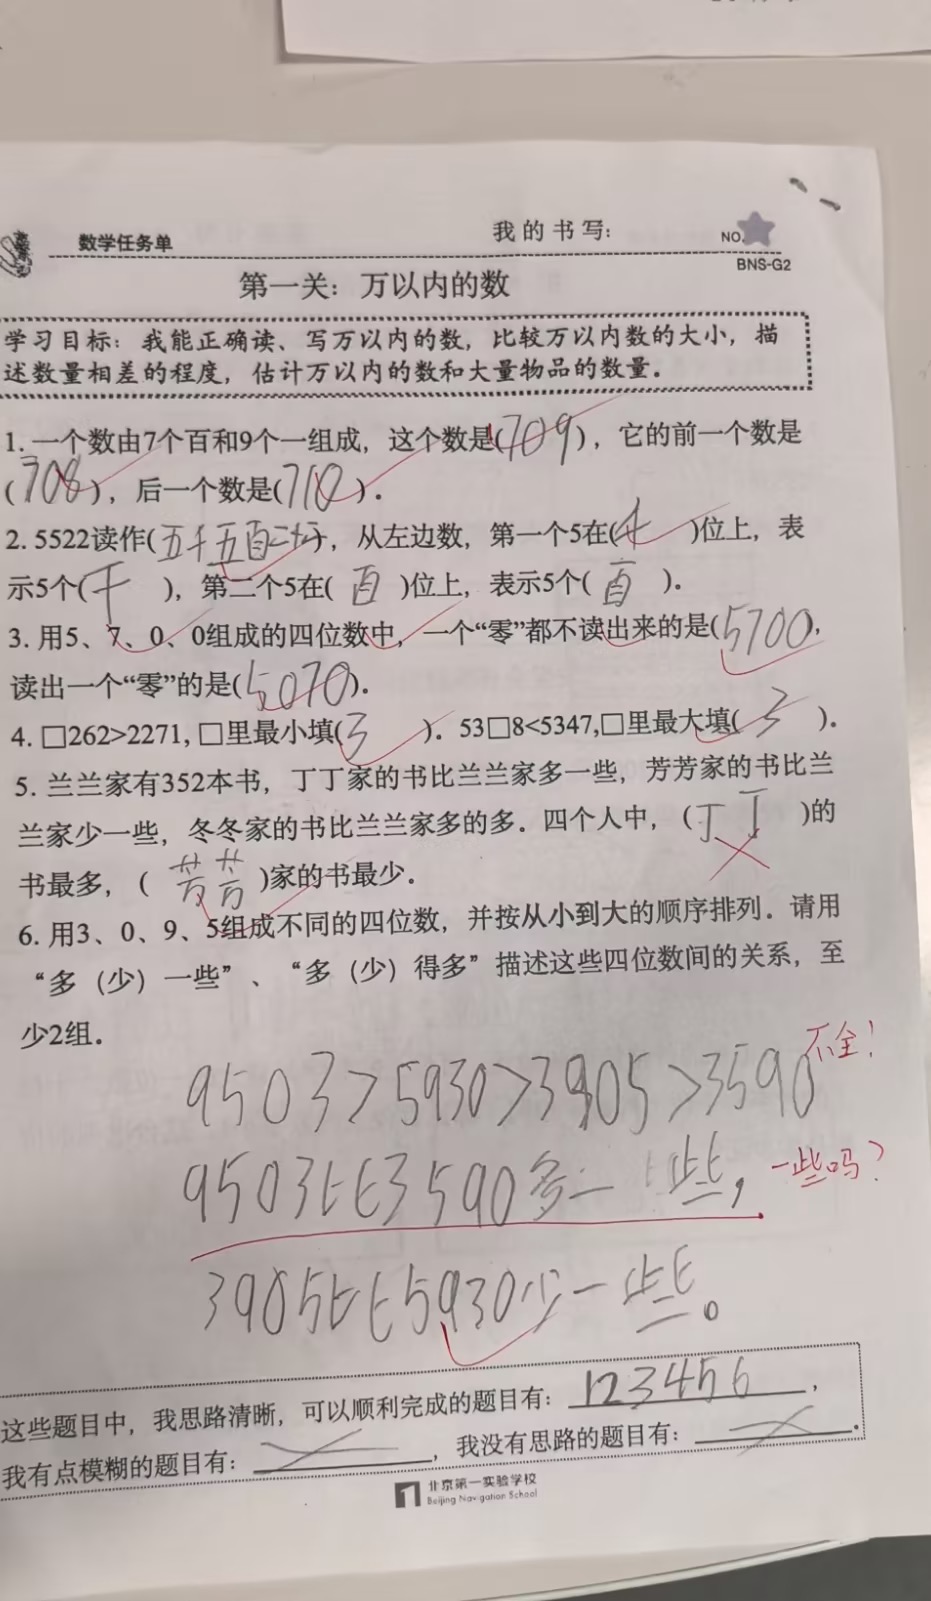 数学任务单
我的书写:
NO.
BNS-G2
第一关：万以内的数
学习目标：我能正确读、写万以内的数，比较万以内数的大小，描
述数量相差的程度，估计万以内的数和大量物品的数量。
1. 一个数由7个百和9个一组成，这个数是(709)，它的前一个数是
(708)，后一个数是(710)。
2. 5522读作(五千五百二十二)，从左边数，第一个5在(千)位上，表
示5个(千)，第二个5在(百)位上，表示5个(百)。
3. 用5、7、0、0组成的四位数中，一个“零”都不读出来的是(5700)，
读出一个“零”的是(5070)。
4. □262>2271, □里最小填(3)。53□8<5347,□里最大填(3)。
5. 兰兰家有352本书，丁丁家的书比兰兰家多一些，芳芳家的书比兰
兰家少一些，冬冬家的书比兰兰家多的多。四个人中，(丁丁)的
书最多，(芳芳)家的书最少。
6. 用3、0、9、5组成不同的四位数，并按从小到大的顺序排列。请用
“多（少）一些”、“多（少）得多”描述这些四位数间的关系，至
少2组。
9503>5930>3905>3590
不全!
9503比3590多一些,
一些吗?
3905比5930少一些。
这些题目中，我思路清晰，可以顺利完成的题目有: 123456，
我有点模糊的题目有: ，我没有思路的题目有: .
北京第一实验学校
Beijing Navigation School